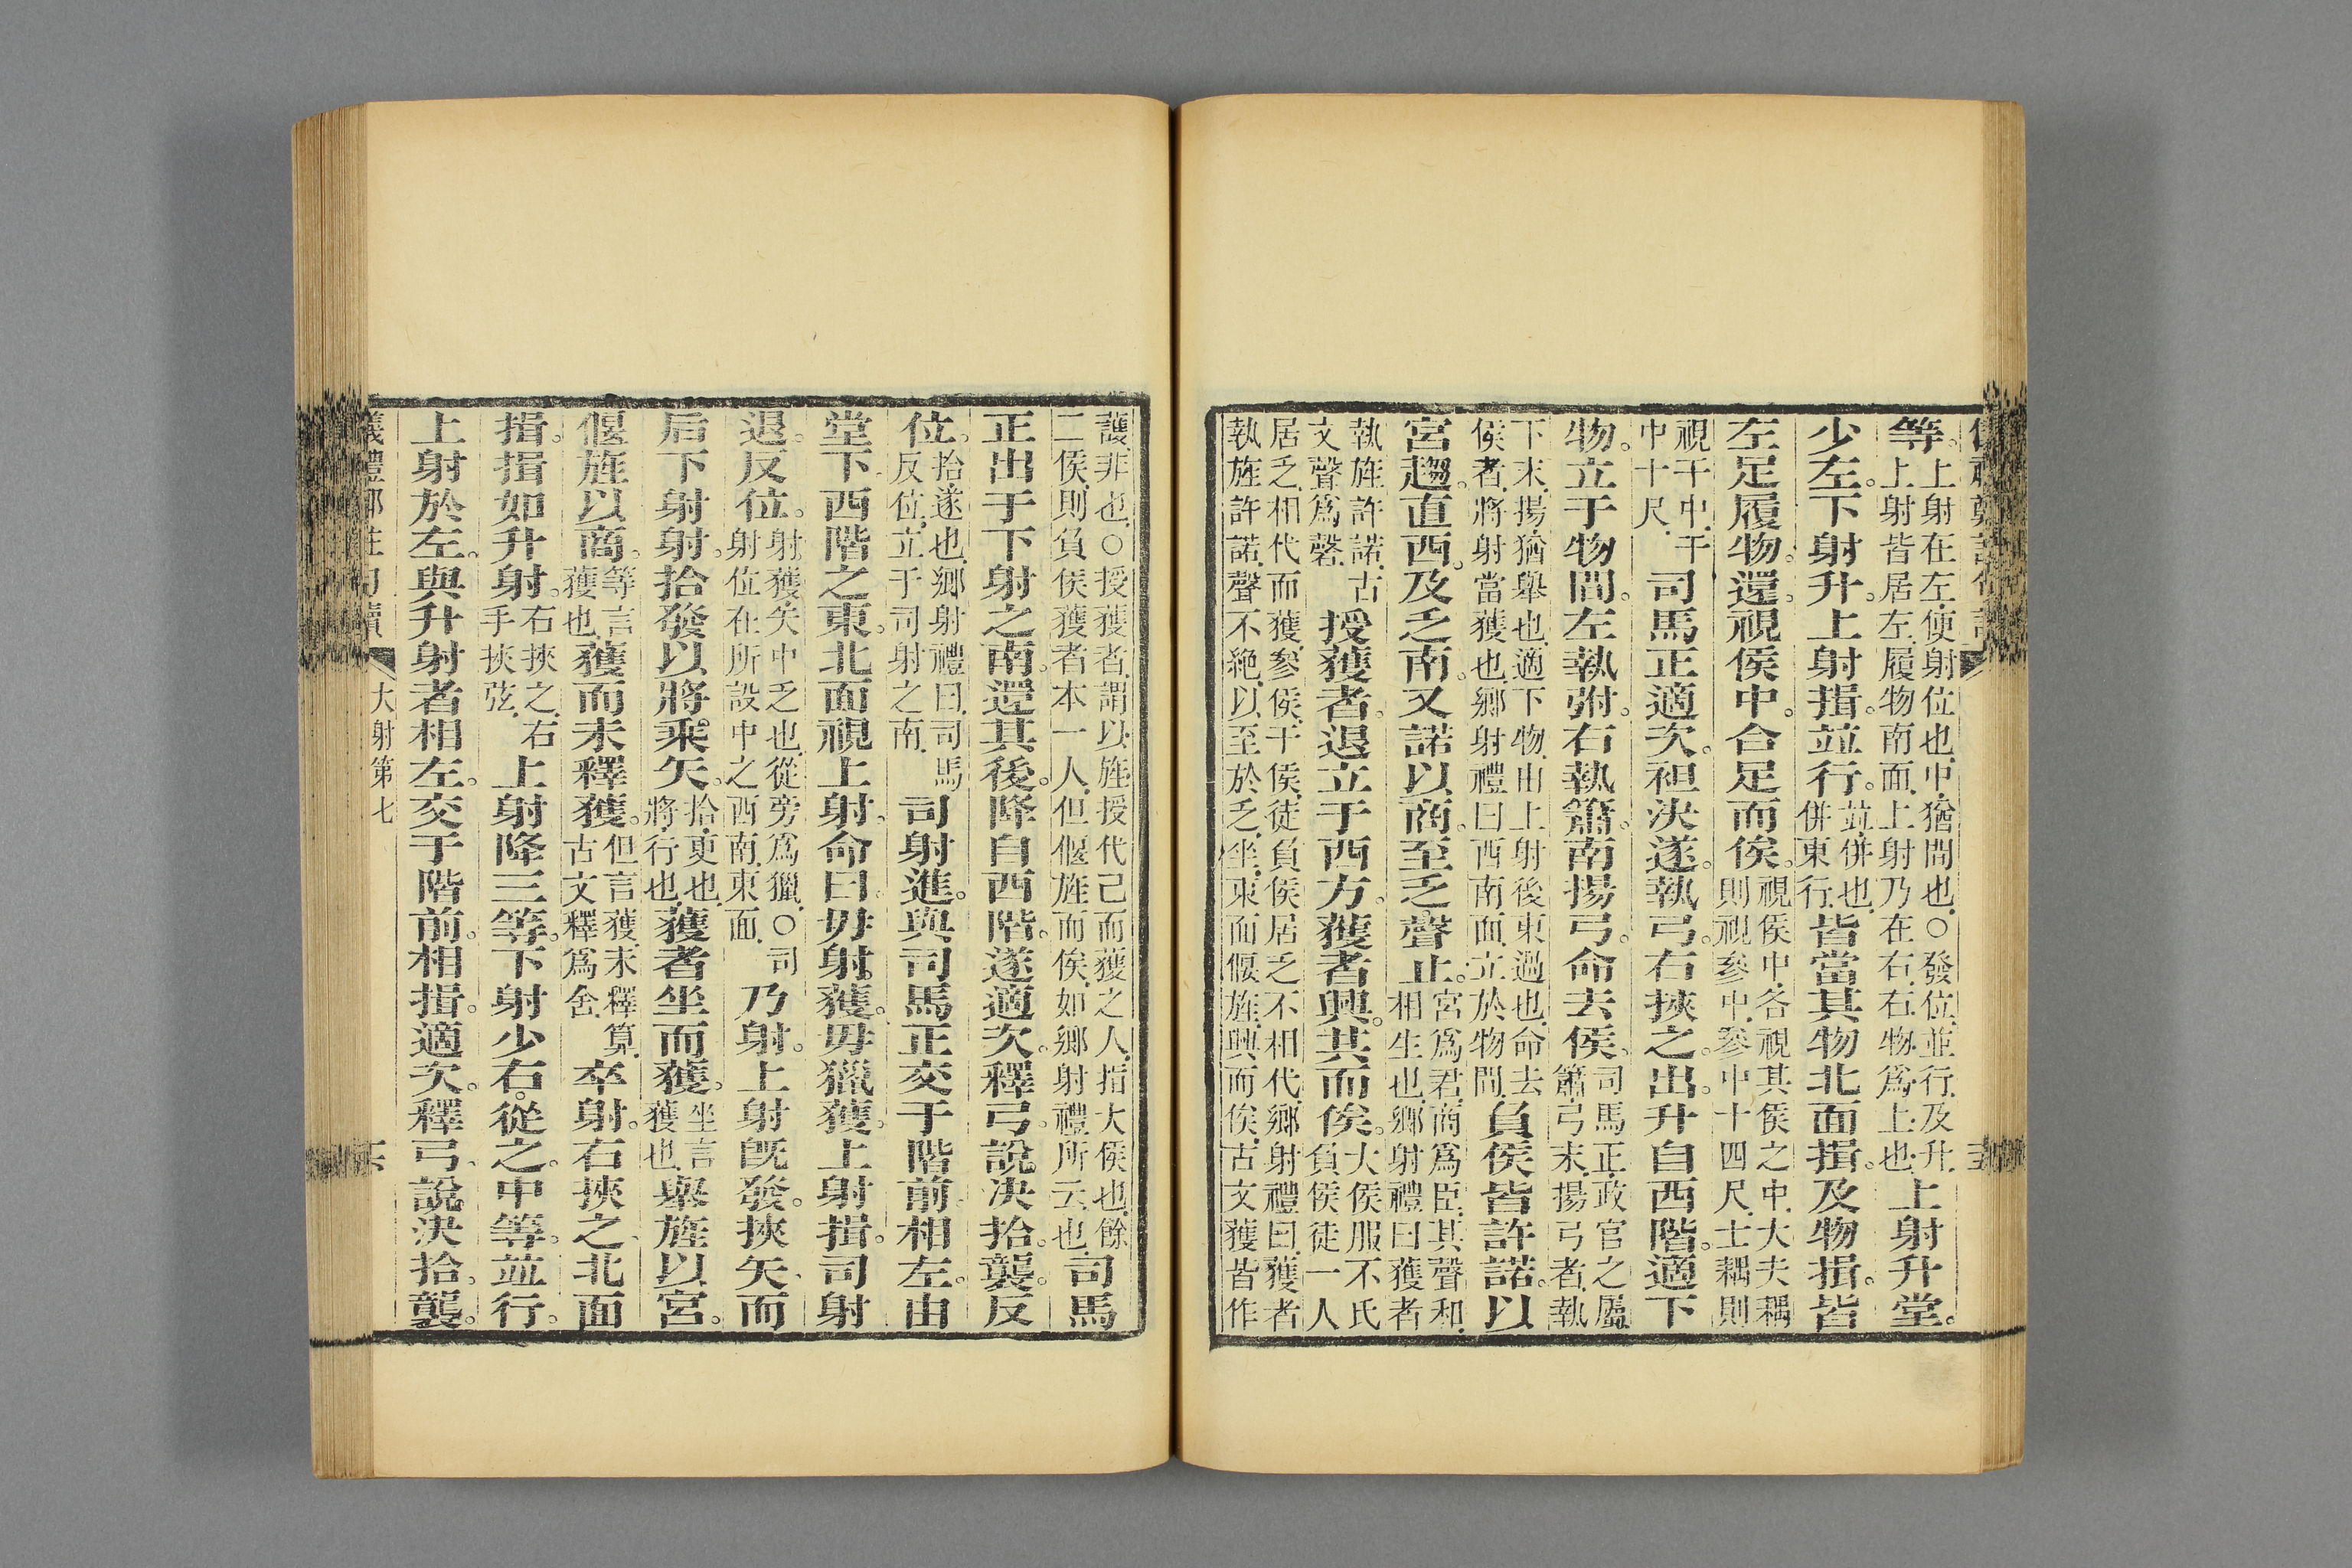 等。上射在左。便射位也。中。猶間也。○發位並行。及升。上射皆居左。履物南面。上射乃在右。右物爲上也。上射升堂。
少左。下射升。上射揖。並行。並。併也。併東行。皆當其物北面揖。及物揖。皆
左足履物。還。視侯中。合足而俟。視侯中。各視其侯之中。大夫耦則視參中。參中十四尺。士耦則
視干中。干中十尺。司馬正適次。袒決遂。執弓。右挾之。出。升自西階。適下
物。立于物間。左執弣。右執簫。南揚弓。命去侯。司馬正。政官之屬。簫。弓末。揚弓者。執
下末。揚。猶舉也。適下物。由上射後東過也。命去侯者。將射當獲也。鄉射禮曰。西南面。立於物間。負侯皆許諾。以
宮趨。直西。及乏南。又諾以商。至乏聲止。宮爲君。商爲臣。其聲和。相生也。鄉射禮曰。獲者
執旌許諾。古文聲爲磬。授獲者。退立于西方。獲者興。共而俟。大侯服不氏負侯徒一人
居乏。相代而獲。參侯。干侯。徒負侯居乏。不相代。鄉射禮曰。獲者執旌許諾。聲不絕。以至於乏。坐東面偃旌。興而俟。古文獲皆作
護。非也。○授獲者。謂以旌授代己而獲之人。指大侯也。餘二侯。則負侯獲者本一人。但偃旌而俟。如鄉射禮所云也。司馬
正出于下射之南。還其後。降自西階。遂適次。釋弓。說決拾。襲。反
位。拾。遂也。鄉射禮曰。司馬反位。立于司射之南。司射進。與司馬正交于階前。相左。由
堂下西階之東。北面視上射。命曰。毋射獲。毋獵獲。上射揖。司射
退。反位。射獲。矢中乏也。從旁爲獵。○司射位在所設中之西南。東面。乃射。上射旣發。挾矢。而
后下射射。拾發以將乘矢。拾。更也。將。行也。獲者坐而獲。坐言獲也。舉旌以宮。
偃旌以商。等言獲也。獲而未釋獲。但言獲。未釋算。古文釋爲舍。卒射。右挾之。北面
揖。揖如升射。右挾之。右手挾弦。上射降三等。下射少右。從之。中等。並行。
上射於左。與升射者相左。交于階前。相揖。適次。釋弓。說決拾。襲。
大射第七